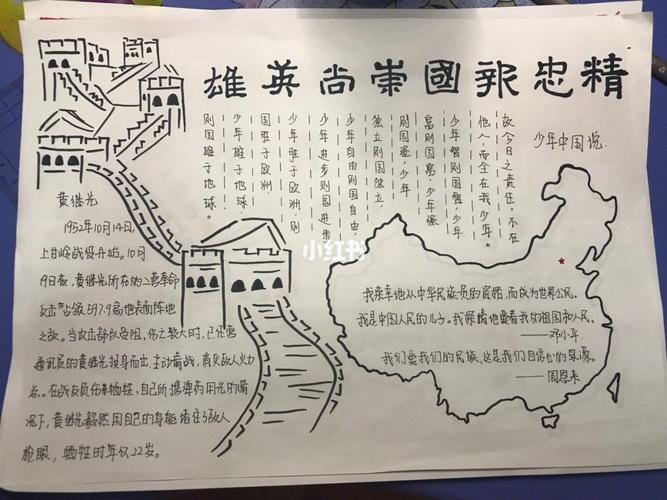 精忠報國崇尚英雄
少年中国说
故今日之责任,不在
他人,而全在我少年。
少年智则国智,少年
富则国富,少年强
则国强,少年
独立则国独立,
少年自由则国自由,
少年进步则国进步
少年胜于欧洲,则
国胜于欧洲,
少年雄于地球,
则国雄于地球。
黄继光
1952年10月14日,
上甘岭战役开始。10月
19日夜,黄继光所在的二营奉命
反击占领597.9高地表面阵地
之敌。当攻击部队受阻,伤亡较大时,已任营
通讯员的黄继光挺身而出,主动请战,消灭敌人火力
点。在战友负伤牺牲、自己所携弹药用光的情
况下,黄继光毅然用自己的身躯堵住了敌人
枪眼,牺牲时年仅22岁。
我荣幸地从中华民族一员的资格,而成为世界公民。
我是中国人民的儿子。我深情地爱着我的祖国和人民。
——邓小平
我们爱我们的民族,这是我们自信心的泉源。
——周恩来
小红书